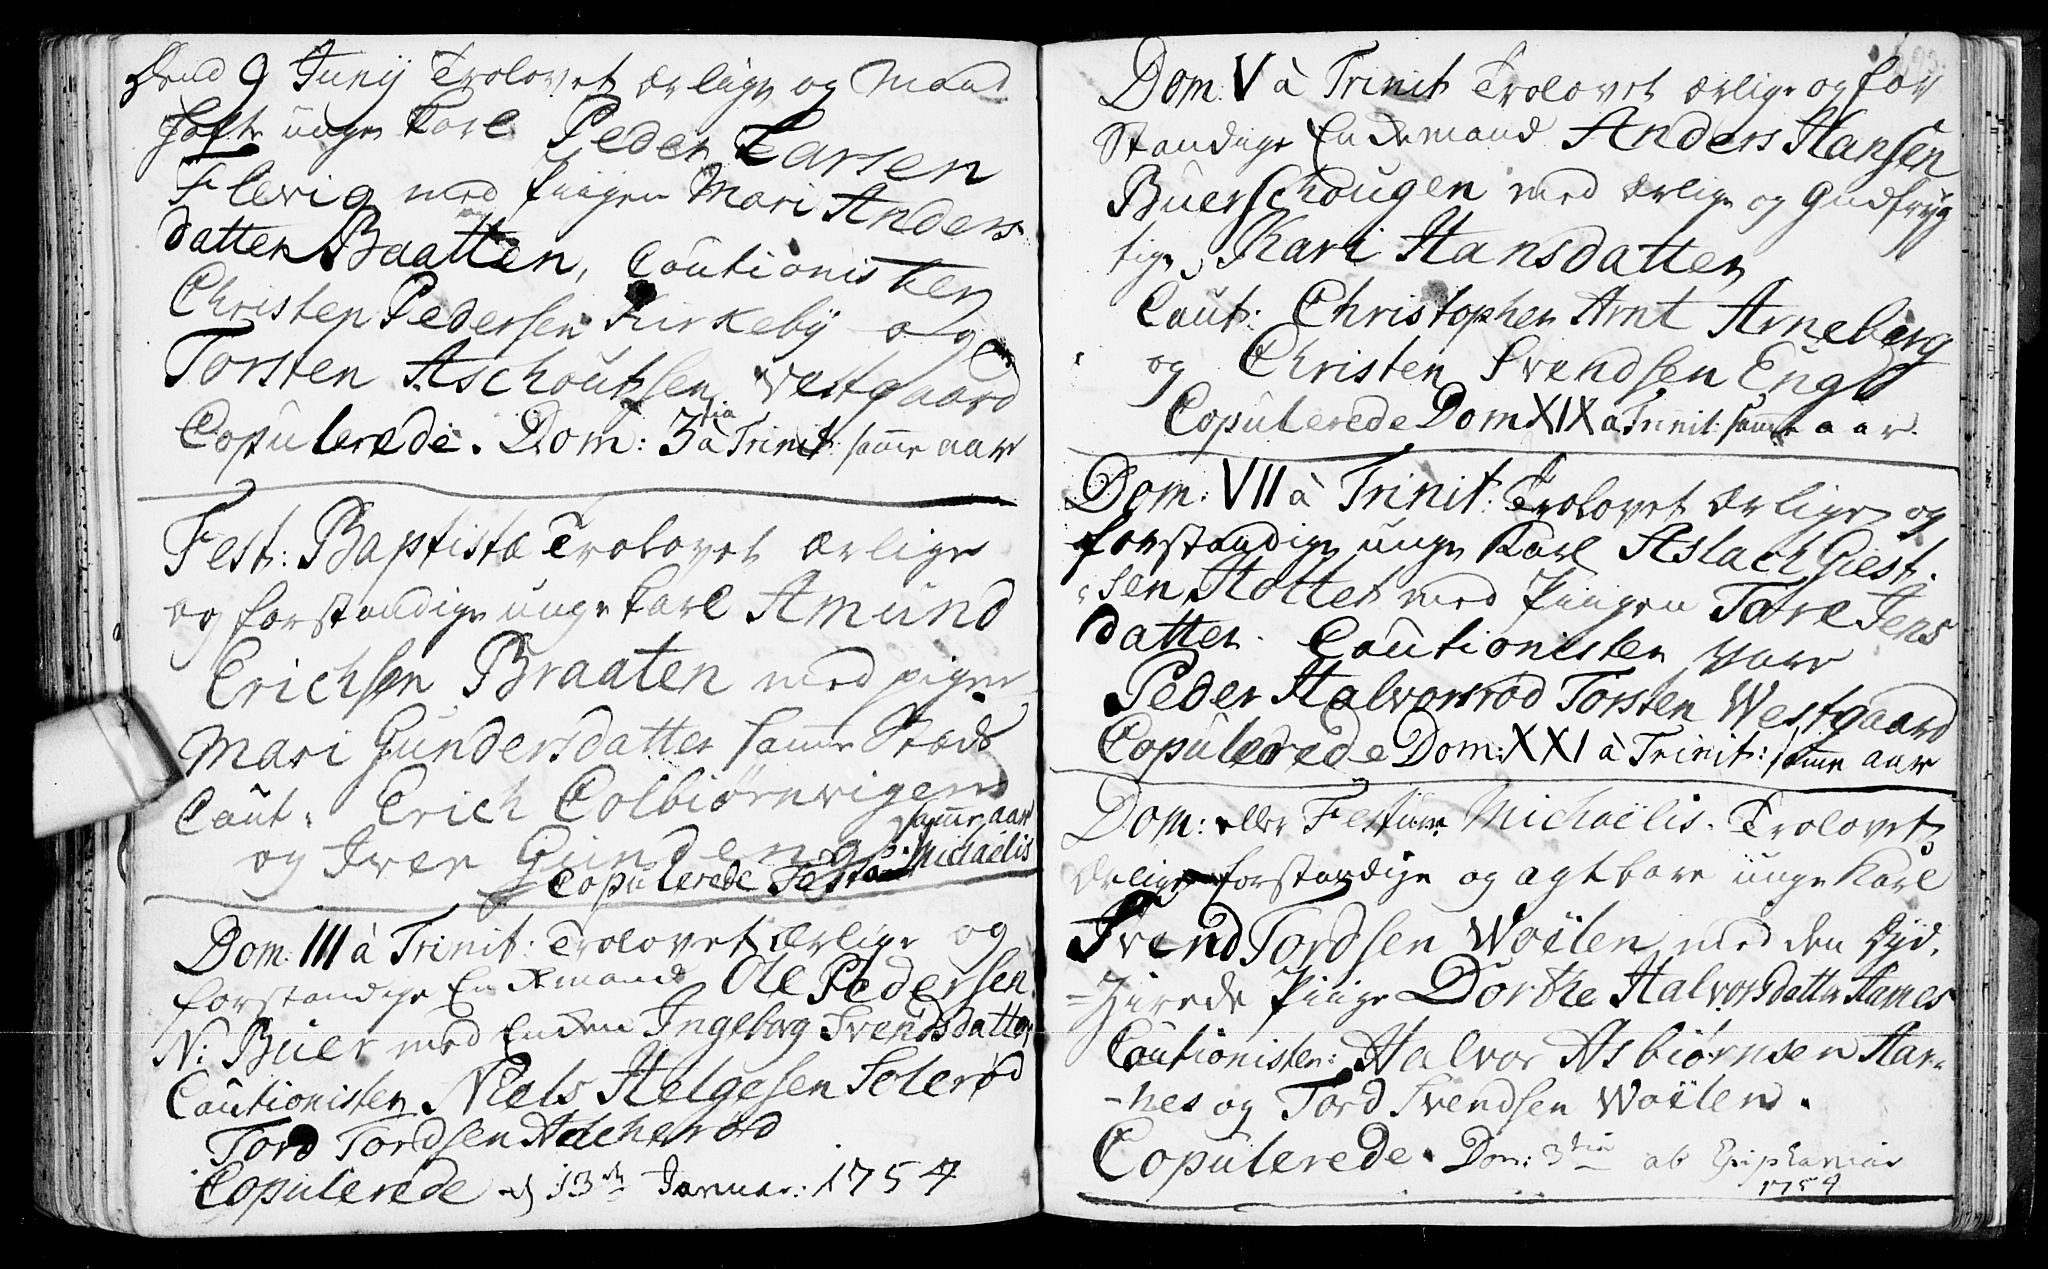 Dend 9 Junij Trolovet ærlige og Mand
hafte unge Karl Peder Larsen
Flevig med Piigen Mari Anders
datter Baatten, Cautionister
Christen Pedersen Kirkebÿ og
Torsten Aschoutsen Westgaard
Copulerede. Dom: 3tia à Trinit samme aar
Fest: Baptistæ Trolovet ærlige
og forstandige unge Karl Amund
Erichsen Braaten med pigen
Mari Gundersdatter samme Stæds
Caut: Erich Colbiørnsvigen
og Iver Gundeng
samme aar
Copulerede Festo Michaëlis
Dom: III à Trinit: Trolovet ærlige og
forstandige Enkemand Ole Pedersen
N: Buer med Enken Ingeborg Svendsdatter
Cautionister Niels Helgesen Solerød
Tord Tordsen Ascherød
Copulerede d 13de Januar: 1754
Dom: V à Trinit Trolovet ærlige og for
standige Enkemand Anders Hansen
Buerschougen med ærlige og Gudfryg
tige Kari Hansdatter
Caut: Christopher Arnt Arneberg
og Christen Svendsen Eng
Copulerede Dom XIX à Trinit: samme aar.
Dom: VII à Trinit: Trolovet ærlige og
forstandige unge Karl Aslach Giest-
sen Holter med Piigen Tore Jens
datter. Cautionister vare
Peder Halvorsrød Torsten Westgaard
Copulerede Dom: XXI à Trinit: samme aar
Dom: eller Festum Michaëlis. Trolovet
ærlige forstandige og agtbare unge Karl
Svend Tordsen Woilen med den Dÿd-
=zirede Piige Dorthe Halvorsdatter Hames
Cautionister: Halvor Asbiørnsen Han-
-nes og Tord Svendsen Woïlen.
Copulerede. Dom: 3tia ab Epiphanias
1754